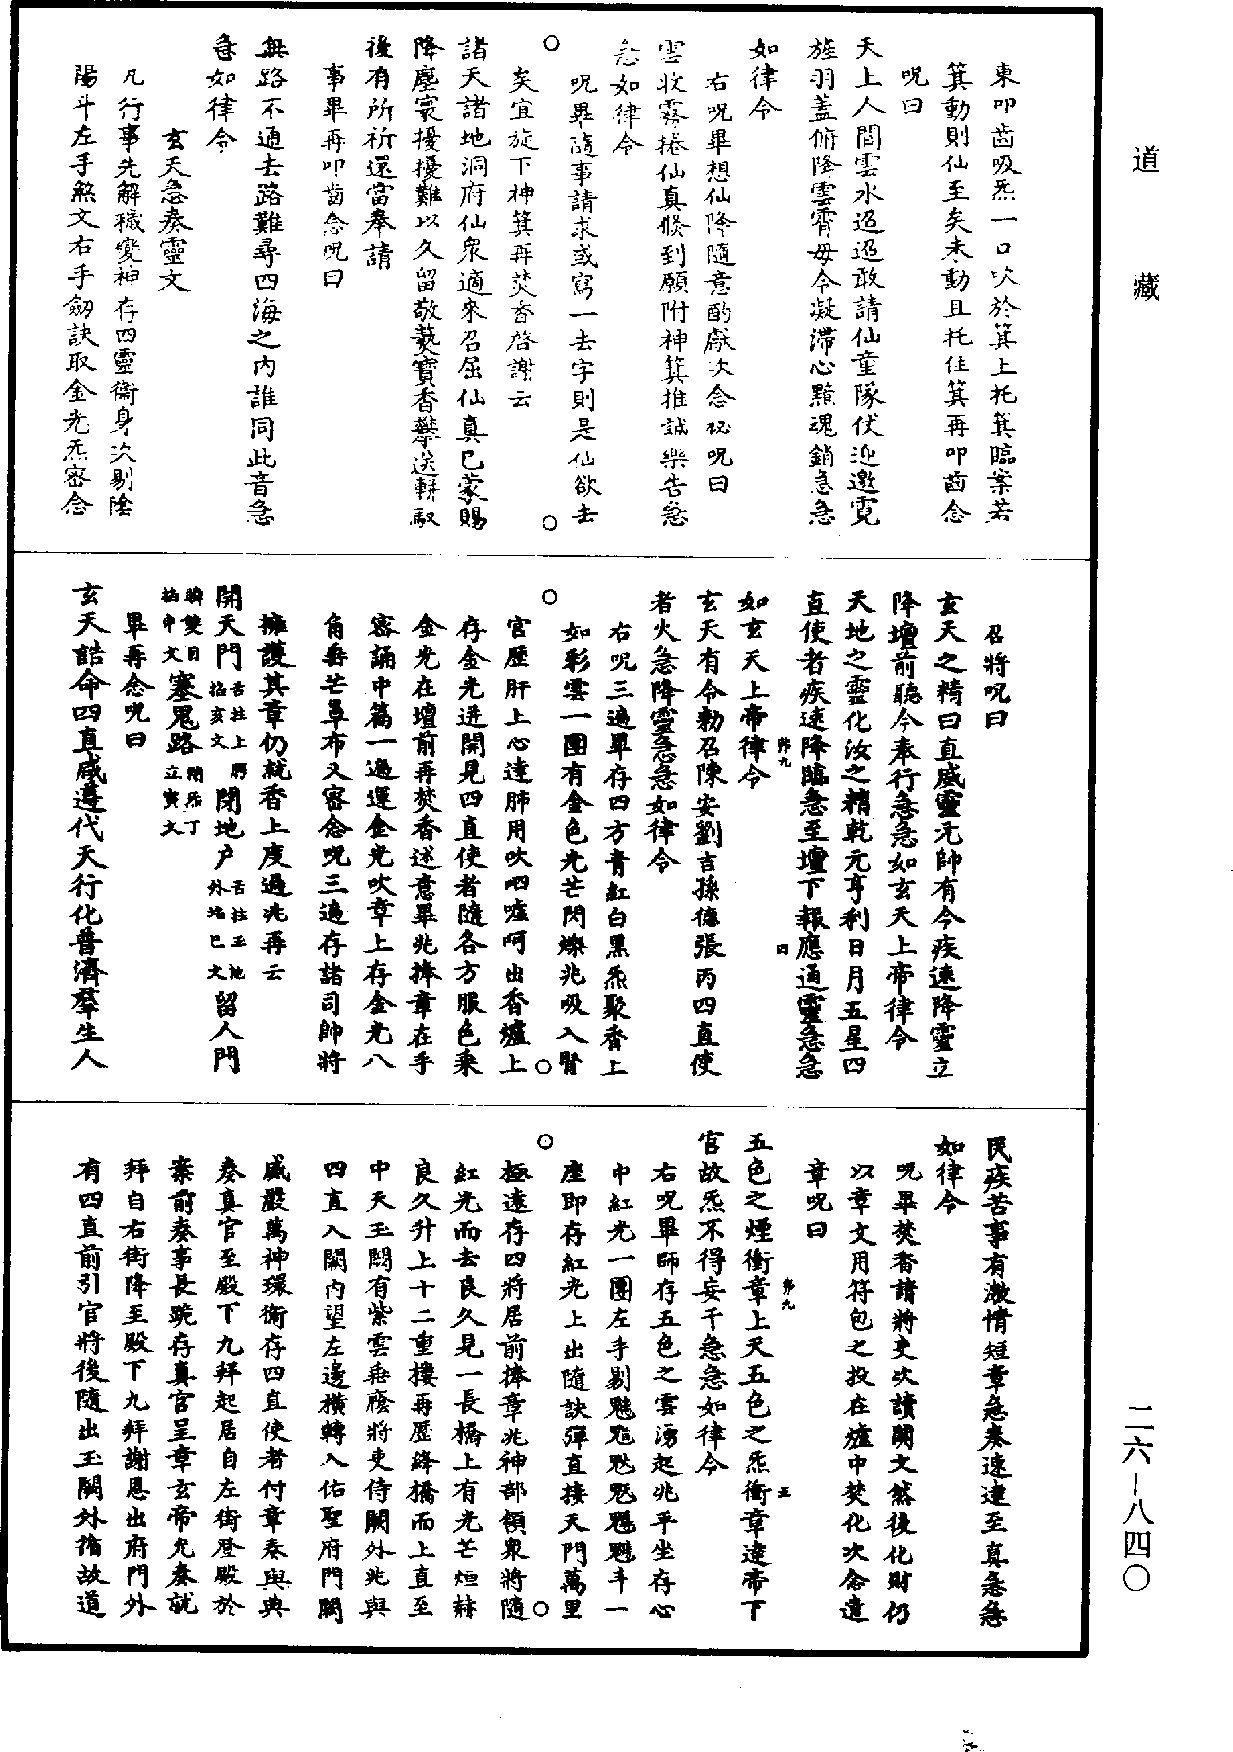 道藏
東叩齒吸炁一口吹於箕上托箕臨案若
箕動則仙至矣未動且托住箕再叩齒念
呪曰
天上人間雲水迢迢敢請仙童隊伏迎邀霓
旌羽蓋俯降雲霄毋令凝滯心黯魂銷急急
如律令
右呪畢想仙降隨意酌獻次念祕呪曰
雲收霧捲仙真倏到願附神箕推誠樂告急
急如律令
呪畢隨事請求或寫一去字則是仙欲去
矣宜旋下神箕再焚香啓謝云
諸天諸地洞府仙衆適來召屈仙真已蒙賜
降塵寰擾擾難以久留敬爇寶香攀送軿馭
後有所祈還當奉請
事畢再叩齒念呪曰
無路不通去路難尋四海之內誰同此音急
急如律令
玄天急奏靈文
凡行事先解穢變神存四靈衞身次剔陰
陽斗左手煞文右手劒訣取金光炁密念
召將呪曰
玄天之精曰直威靈元帥有令疾速降靈立
降壇前聽今奉行急急如玄天上帝律令
天地之靈化汝之精乾元亨利日月五星四
直使者疾速降臨急至壇下報應通靈急急
如玄天上帝律令
玄天有令勑召陳安劉吉孫德張丙四直使
者火急降靈急急如律令
右呪三遍畢存四方青紅白黑炁聚香上
如彩雲一團有金色光芒閃爍兆吸入腎
宮歷肝上心達肺用吹呬噓呵出香爐上
存金光迸開見四直使者隨各方服色乘
金光在壇前再焚香述意畢兆捧章在手
密誦中篇一過運金光吹章上存金光八
角垂芒罩布又密念呪三遍存諸司帥將
擁護其章仍就香上度過兆再云
開天門舌拄上腭掐亥文閉地户舌拄玉池外掐巳文留人門
瞬雙目掐申文塞鬼路閉炁丁立寅文
畢再念呪曰
玄天誥命四直咸遵代天行化普濟羣生人
民疾苦事有激情短章急奏速達至真急急
如律令
呪畢焚香請將吏次讀關文然後化財仍
以章文用符包之投在爐中焚化次念遣
章呪曰
五色之煙衝章上天五色之炁衝章達帝下
官故炁不得妄干急急如律令
右呪畢師存五色之雲湧起兆平坐存心
中紅光一團左手剔魁斗一
座即存紅光上出隨訣彈直接天門萬里
極遠存四將居前捧章兆神部領衆將隨
紅光而去良久見一長橋上有光芒烜赫
良久升上十二重樓再歷絳橋而上直至
中天玉闕有紫雲垂廕將吏侍闕外兆與
四直入闕內望左邊橫轉入佑聖府門闕
威嚴萬神環衞存四直使者付章奏與典
奏真官至殿下九拜起居自左街登殿於
案前奏事長跪存真官呈章玄帝允奏就
拜自右街降至殿下九拜謝恩出府門外
有四直前引官將後隨出玉闕外循故道
二六-八四〇